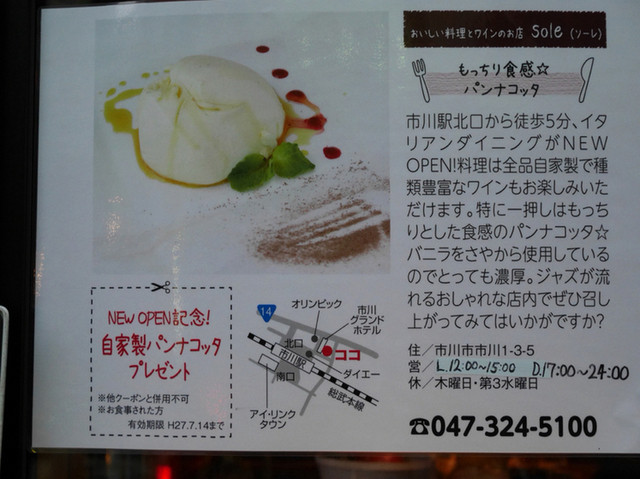 おいしい料理とワインのお店 Sole (ソーレ)
もっちり食感☆
パンナコッタ
市川駅北口から徒歩5分、イタ
リアンダイニングがNEW
OPEN!料理は全品自家製で種
類豊富なワインもお楽しみいた
だけます。特に一押しはもっち
りとした食感のパンナコッタ☆
バニラをさやから使用している
のでとっても濃厚。ジャズが流
れるおしゃれな店内でぜひ召し
上がってみてはいかがですか?
住/市川市市川1-3-5
営/L.12:00~15:00 D.17:00~24:00
休/木曜日・第3水曜日
☎047-324-5100
NEW OPEN記念!
自家製パンナコッタ
プレゼント
※他クーポンと併用不可
※お食事された方
有効期限 H27.7.14まで
14
オリンピック
市川
グランド
ホテル
北口
ココ
市川駅
ダイエー
南口
総武本線
アイ・リンク
タウン